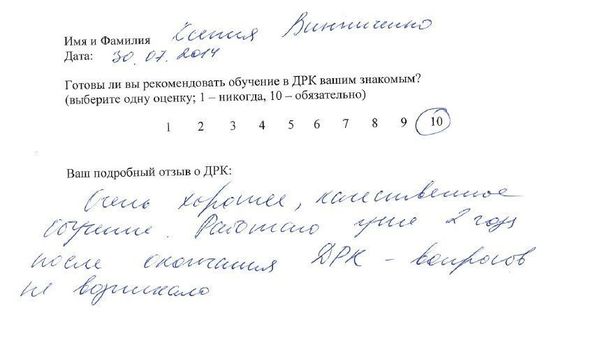 Имя и Фамилия Ксения Винниченко
Дата: 30.07.2014
Готовы ли вы рекомендовать обучение в ДРК вашим знакомым?
(выберите одну оценку; 1 – никогда, 10 – обязательно)
1 2 3 4 5 6 7 8 9 10
Ваш подробный отзыв о ДРК:
Очень хорошее, качественное
обучение. Работаю уже 2 года
после окончания ДРК - вопросов
не возникало